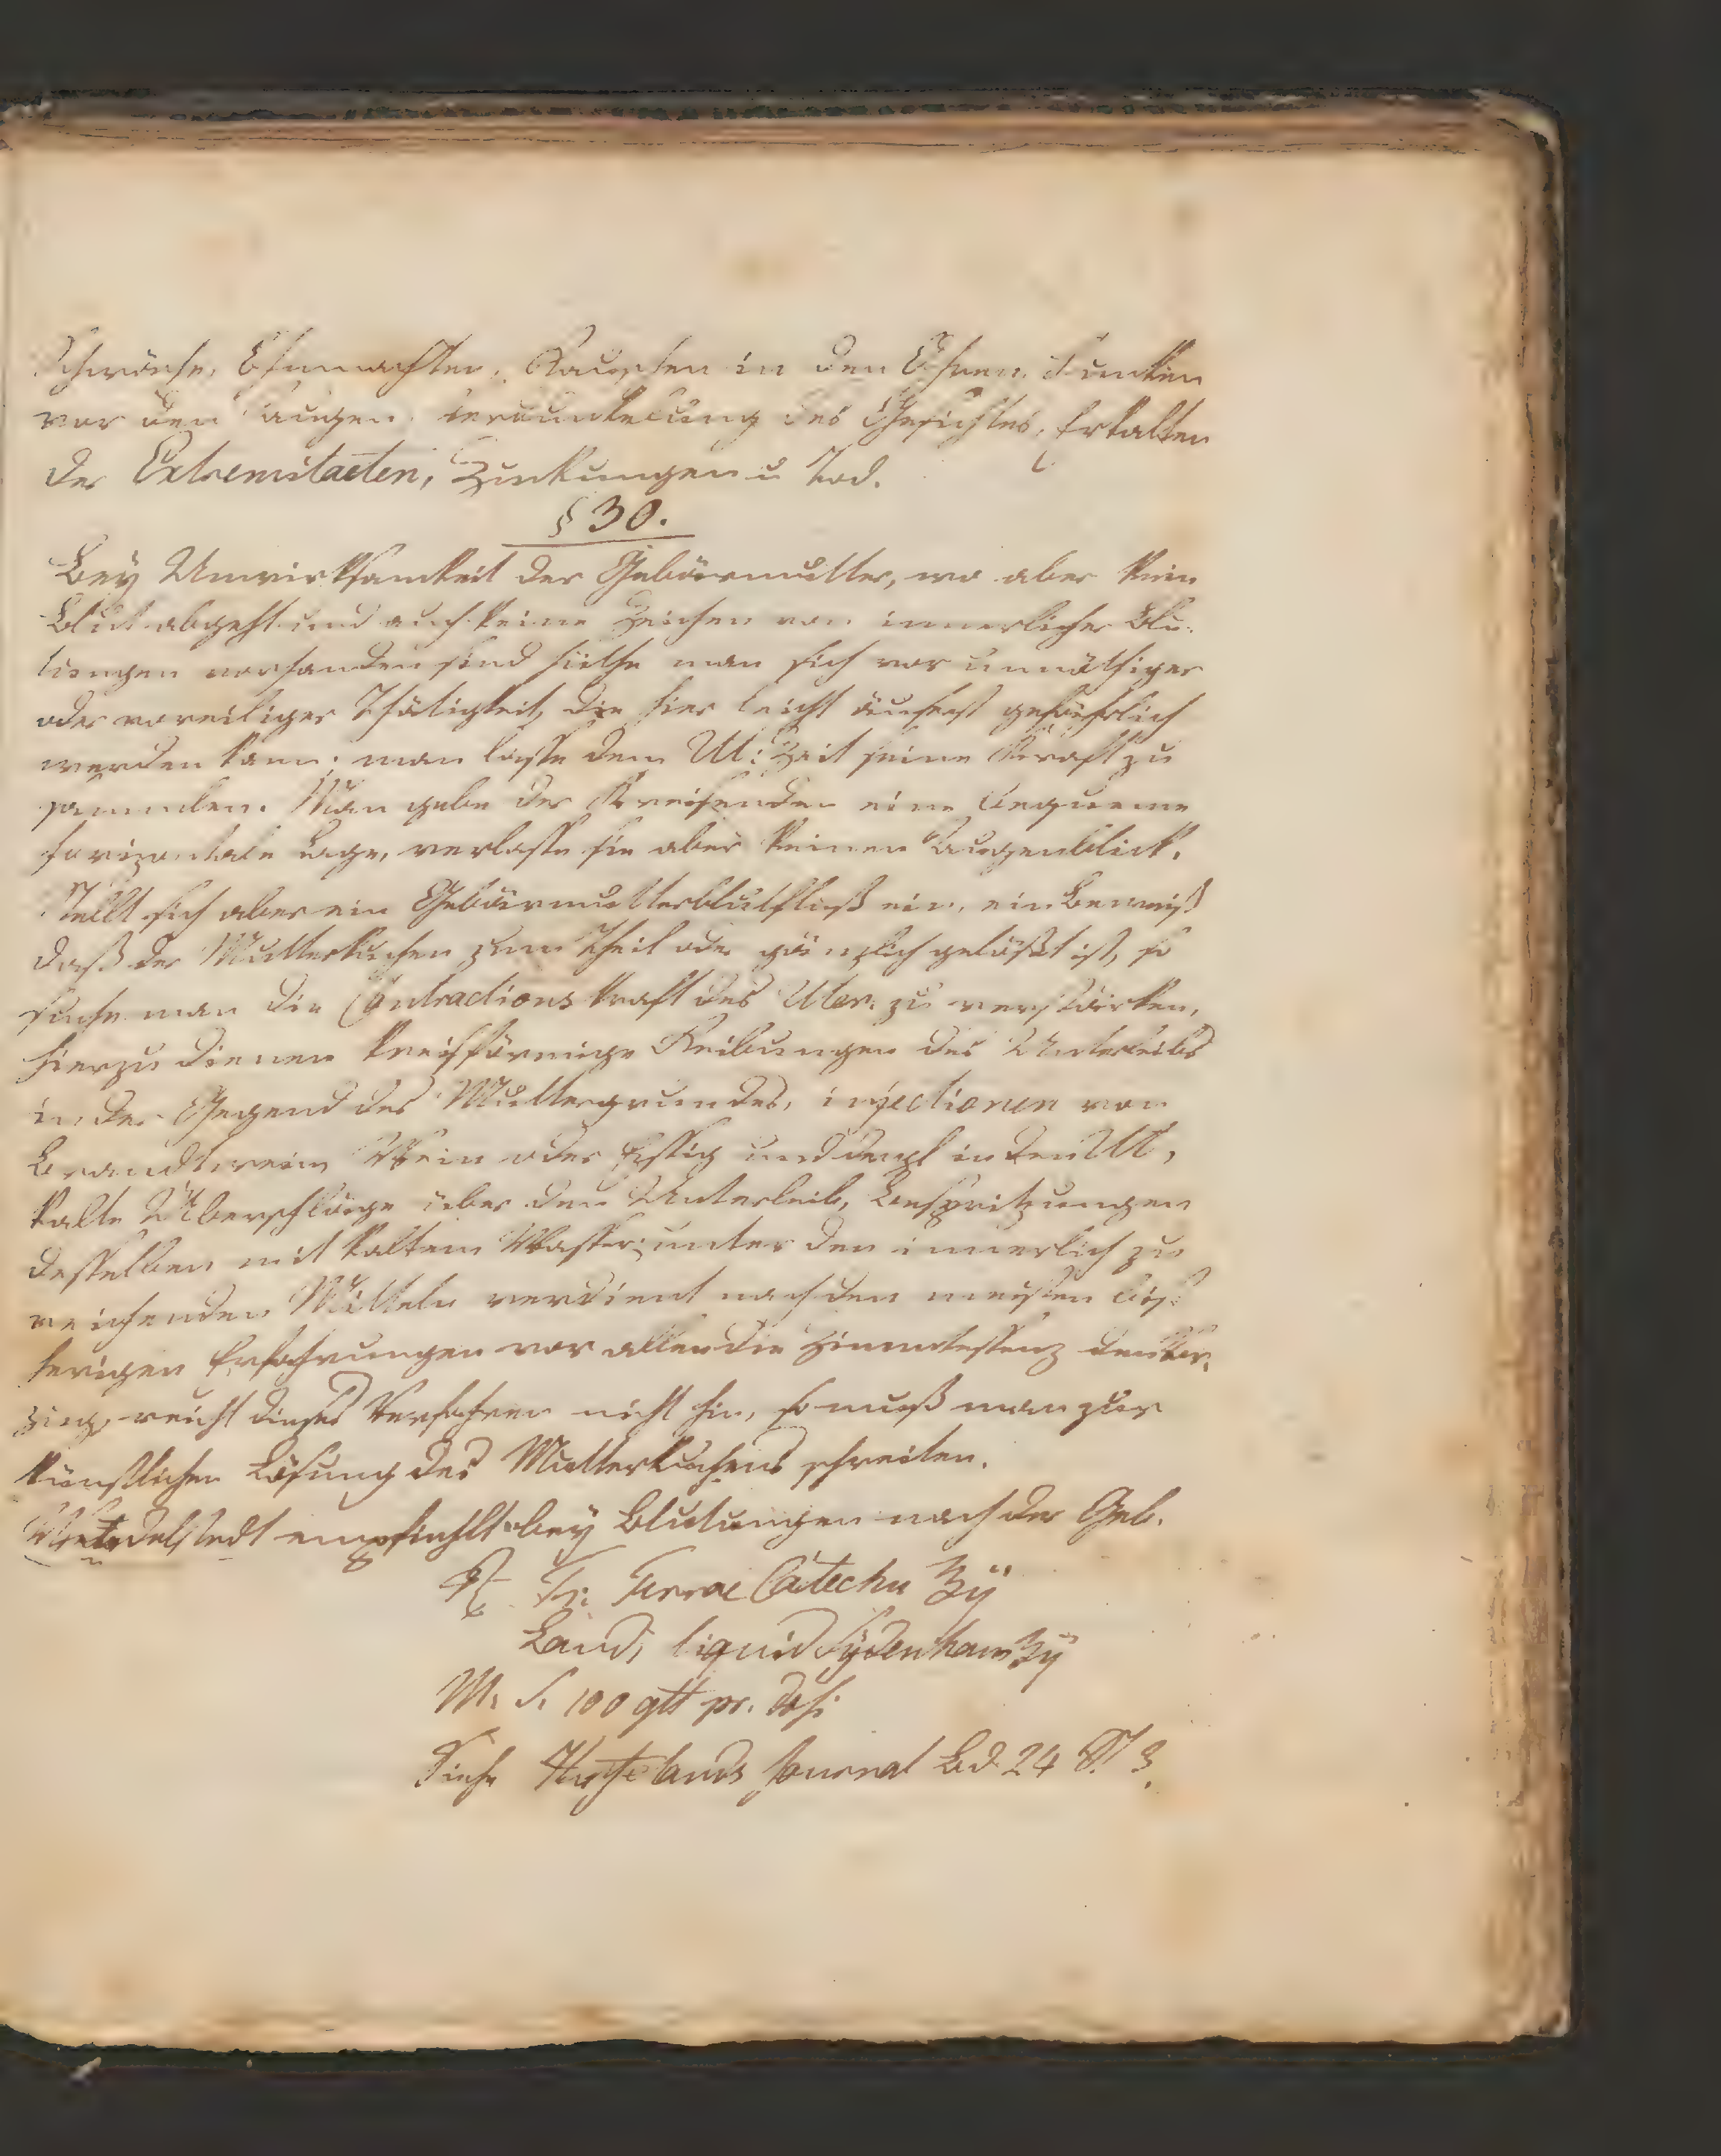 Schwäche, Ohnmachten, Rauschen in den Ohren, Funken
vor den Augen, Verdunkelung des Gesichtes, Erkalten
der Extremitaeten, Zuckungen u Tod.
§ 30.
Bey Unwirksamkeit der Gebärmutter, wo aber kein
Blut abgeht und auch keine Zeichen von innerlicher Blu-
tungen vorhanden sind hüthe man sich vor unnöthiger
oder voreiliger Thätigkeit, die hier leicht äuserst gefährlich
werden kann; man lasse dem Ut: Zeit seine Kraft zu
sammlen. Man gebe der Kreisenden eine bequeme
horizontale Lage, verlasse sie aber keinen Augenblick.
Stellt sich aber ein Gebärmutterblutfluß ein, ein Beweiß
daß der Mutterkuchen zum Theil oder gänzlich gelößt ist, so
suche man die Contractions kraft des Uter. zu verstärken,
hierzu dienen kreisförmige Reibungen des Unterleibs
in der Gegend des Muttergrundes, injectionen von
Brandtwein Wein oder Essig und dergl in den Ut,
kalte Überschläge über den Unterleib, Bespritzungen
desselben mit kaltem Wasser; unter den innerlich zu
reichenden Mitteln verdient nach den meisten bis-
herigen Erfahrungen vor allen die Zimmtessenz den Vor-
zug, reicht dieses Verfahren nicht hin, so muß man zur
künstlichen Lösung des Mutterkuchens schreiten.
empfiehlt bey Blutungen nach der Geb.
Rx Tr: Terrae Catechu ʒij
Laud, liquid Sydenham ʒij
M. S. 100 gtt pr. dos:
Siehe Hufelands Journal Bd 24 St 3.